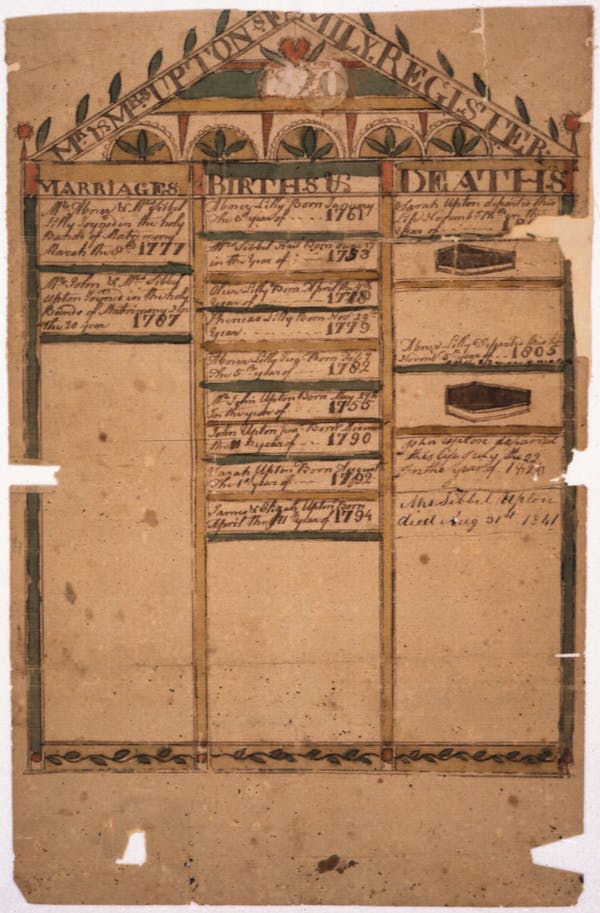 MR & MRS UPTONS FAMILY REGISTER
MARRIAGES
Mr Abner & Ms Sibbel
Lilly Joyned in the holy
Bands of Matrimony
March the 8th 1777
Mr John & Mrs Sibbel
Upton Joyned in the holy
Bands of Matrimony
the 20 year 1787
BIRTHS
Abner Lilly Born January
The year of 1761
Mrs Sibbel Born June
in the Year of 1753
Olive Lilly Born April the
Year of 1778
Phineas Lilly Born Nov 29th
Year 1779
Abner Lilly Born Feb
The 5th year of 1782
Mr John Upton Born May
in the year of 1755
John Upton Junr Born
the year of 1790
Sarah Upton Born August
The 1st year of 1792
James & Upton Born
April the 11th year of 1794
DEATHS
Sarah Upton departed this
Life
Year of
Abner Lilly this
year of 1805
John Upton departed
this life July the 29
in the year of
Mrs Sibbel Upton
died Aug 31st 1841